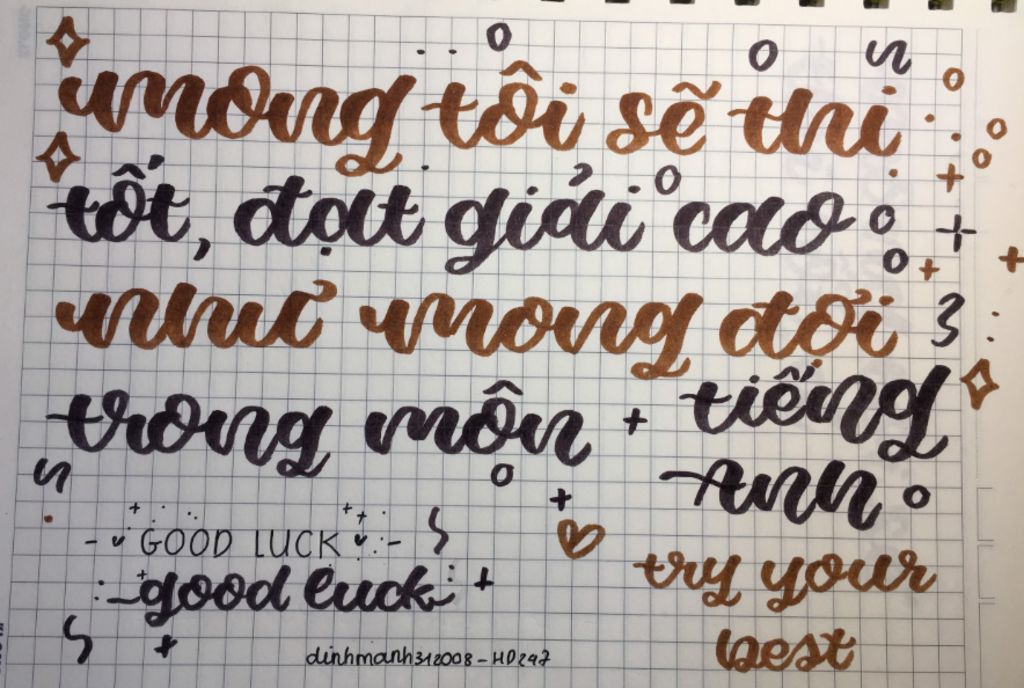 mong tôi sẽ thi
tốt, đạt giải cao
như mong đợi
trong môn tiếng
Anh
GOOD LUCK
good luck
try your
best
dinhmanh312008-HD247